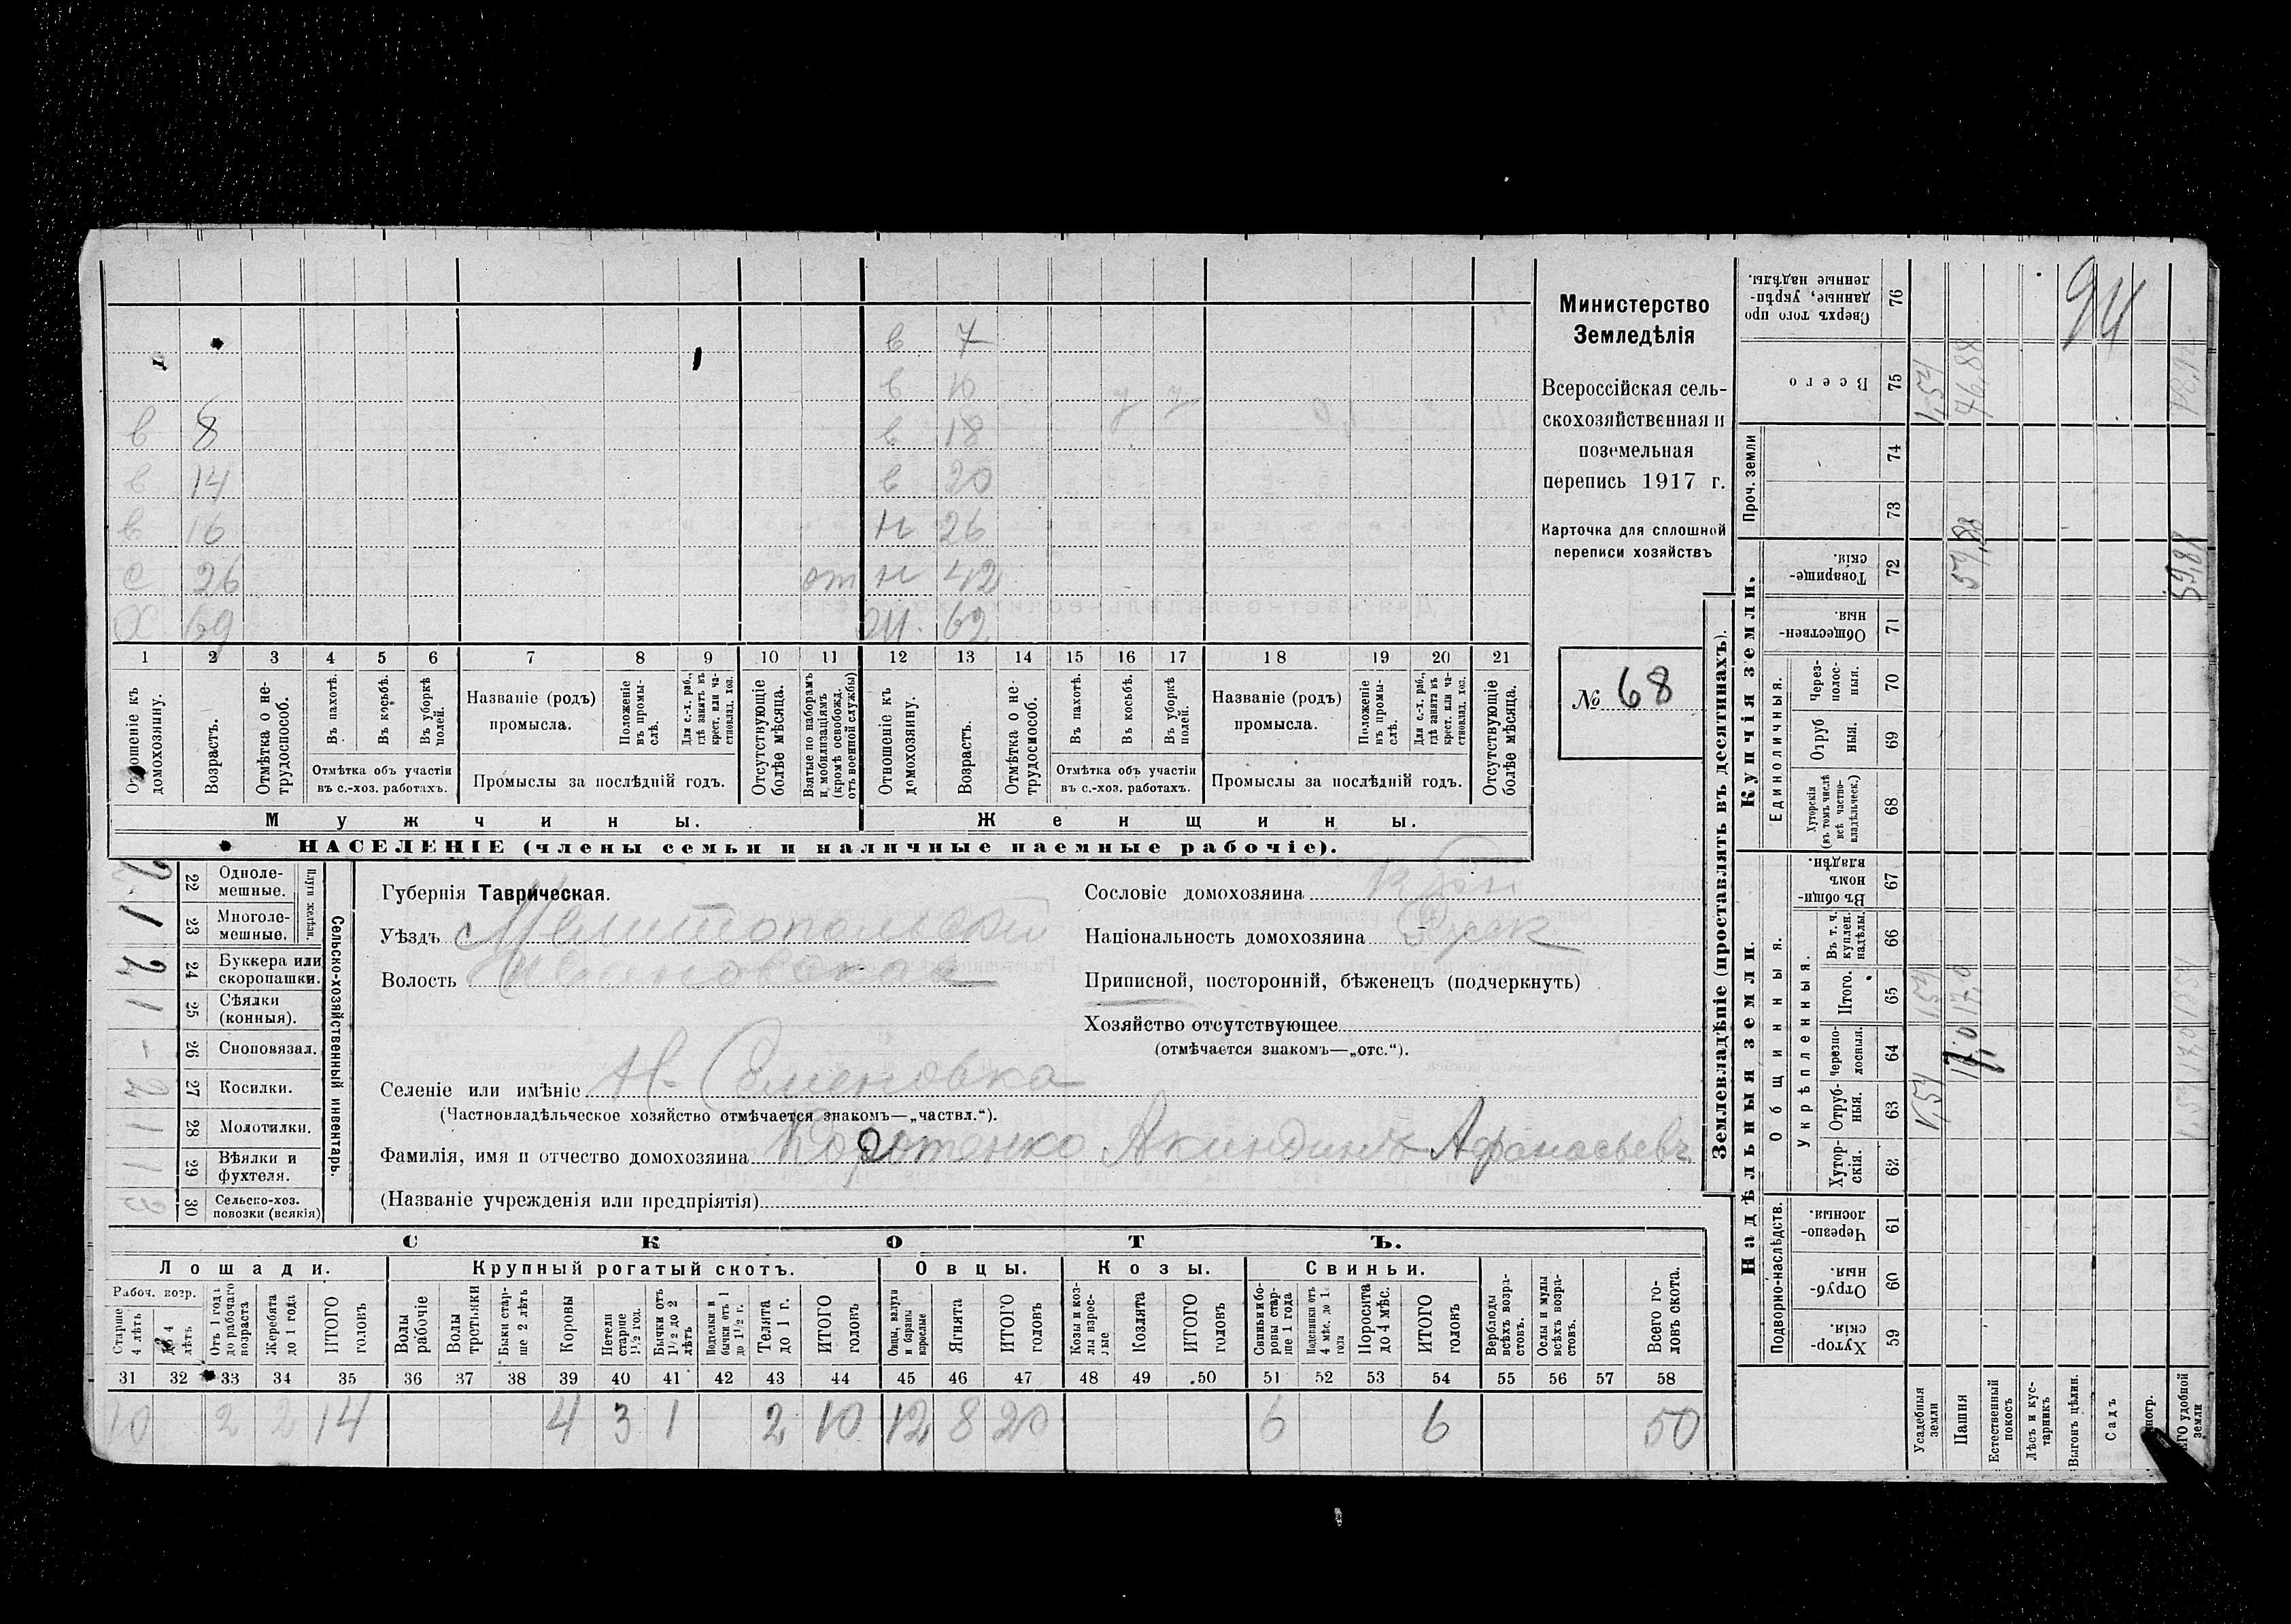 в 7
в 10 у у
в 8 в 18
в 14 в 20
в 16 н 26
с 26 от н 42
х 69 ж. 62
1 2 3 4 5 6 7 8 9 10 11 12 13 14 15 16 17 18 19 20 21
Отношеніе къ домохозяину.
Возрастъ.
Отмѣтка о не-
трудоспособ.
Въ пахотѣ.
Въ косьбѣ.
Въ уборкѣ
полей.
Отмѣтка объ участіи
въ с.-хоз. работахъ.
Названіе (родъ)
промысла.
Положеніе
въ промы-
слѣ.
Для с.-х. раб.,
гдѣ занятъ въ
крест. или ча-
стновлад. хоз.
Промыслы за послѣдній годъ.
Отсутствующіе
болѣе мѣсяца.
Взятые по наборамъ
и мобилизаціямъ
(кромѣ освобожд.
отъ военной службы)
Отношеніе къ
домохозяину.
Возрастъ.
Отмѣтка о не-
трудоспособ.
Въ пахотѣ.
Въ косьбѣ.
Въ уборкѣ
полей.
Отмѣтка объ участіи
въ с.-хоз. работахъ.
Названіе (родъ)
промысла.
Положеніе
въ промы-
слѣ.
Для с.-х. раб.,
гдѣ занята въ
крест. или ча-
стновлад. хоз.
Промыслы за послѣдній годъ.
Отсутствующіе
болѣе мѣсяца.
Мужчины. Женщины.
НАСЕЛЕНІЕ (члены семьи и наличные наемные рабочіе).
Министерство
Земледѣлія
Всероссійская сель-
скохозяйственная и
поземельная
перепись 1917 г.
Карточка для сплошной
переписи хозяйствъ
№ 68
Сельско-хозяйственный инвентарь.
Плуги желѣзн.
22 Одноле-
мешные.
1 23 Многоле-
мешные.
2 24 Буккера или
скоропашки.
1 25 Сѣялки
(конныя).
- 26 Сноповязал.
2 27 Косилки.
1 28 Молотилки.
1 29 Вѣялки и
фухтеля.
3 30 Сельско-хоз.
повозки (всякія)
Губернія Таврическая.
Уѣздъ Мелитопольскій
Волость Ивановская
Селеніе или имѣніе Н. Семеновка
(Частновладѣльческое хозяйство отмѣчается знакомъ—„частвл.“).
Фамилія, имя и отчество домохозяина Коротенко Акиндинъ Афанасьевъ
(Названіе учрежденія или предпріятія)
Сословіе домохозяина
Національность домохозяина
Приписной, посторонній, бѣженецъ (подчеркнуть)
Хозяйство отсутствующее
(отмѣчается знакомъ—„отс.“).
СКОТЪ.
Лошади. Крупный рогатый скотъ. Овцы. Козы. Свиньи.
Рабоч. возр.
Старше
4 лѣтъ
До 4
лѣтъ
Отъ 1 года
до рабочаго
возраста
Жеребята
до 1 года
ИТОГО
головъ
Волы
рабочіе
Волы
третьяки
Быки стар-
ше 2 лѣтъ
Коровы
Нетели
старше
1½ год.
Бычки отъ
1½ до 2
лѣтъ
Подтелки и
бычки отъ 1
до 1½ г.
Телята
до 1 г.
ИТОГО
головъ
Овцы, валухи
и бараны
взрослые
Ягнята
ИТОГО
головъ
Козы и коз-
лы взрос-
лые
Козлята
ИТОГО
головъ
Свиньи и бо-
ровы стар-
ше 1 года
Подсвинки отъ
4 мѣс. до 1
года
Поросята
до 4 мѣс.
ИТОГО
головъ
Верблюды
всѣхъ возра-
стовъ.
Ослы и мулы
всѣхъ возра-
стовъ.
Всего го-
ловъ скота.
31 32 33 34 35 36 37 38 39 40 41 42 43 44 45 46 47 48 49 50 51 52 53 54 55 56 57 58
10 2 2 14 4 3 1 2 10 12 8 20 6 6 50
Землевладѣніе (проставлять въ десятинахъ).
Надѣльныя земли. Купчія земли.
Подворно-наслѣдств.
Общинныя.
Укрѣпленныя.
Единоличныя.
Проч. земли
Хутор-
скія.
59
Отруб-
ныя.
60
Черезпо-
лосныя.
61
Хутор-
скія.
62
Отруб-
ныя.
63
Черезпо-
лосныя.
64
Итого.
65
Въ т. ч.
куплен.
надѣлы.
66
Въ общи-
номъ
владѣн.
67
Хуторскія
(въ томъ числѣ
всѣ частно-
владѣльческ.)
68
Отруб
ныя.
69
Через-
полос-
ныя.
70
Обществен-
ныя.
71
Товарище-
скія.
72
73
74
Всего
75
Сверхъ того про
данные, укрѣп-
ленные надѣлы.
76
Усадебныя
земли
1,54 1,54 1,54
Пашня
17,0 17,0 59,88 76,88
Естественный
покосъ
Лѣсъ и кус-
тарникъ
Выгонъ цѣлин.
94
Садъ
ногр.
ГО удобной
земли
59,88